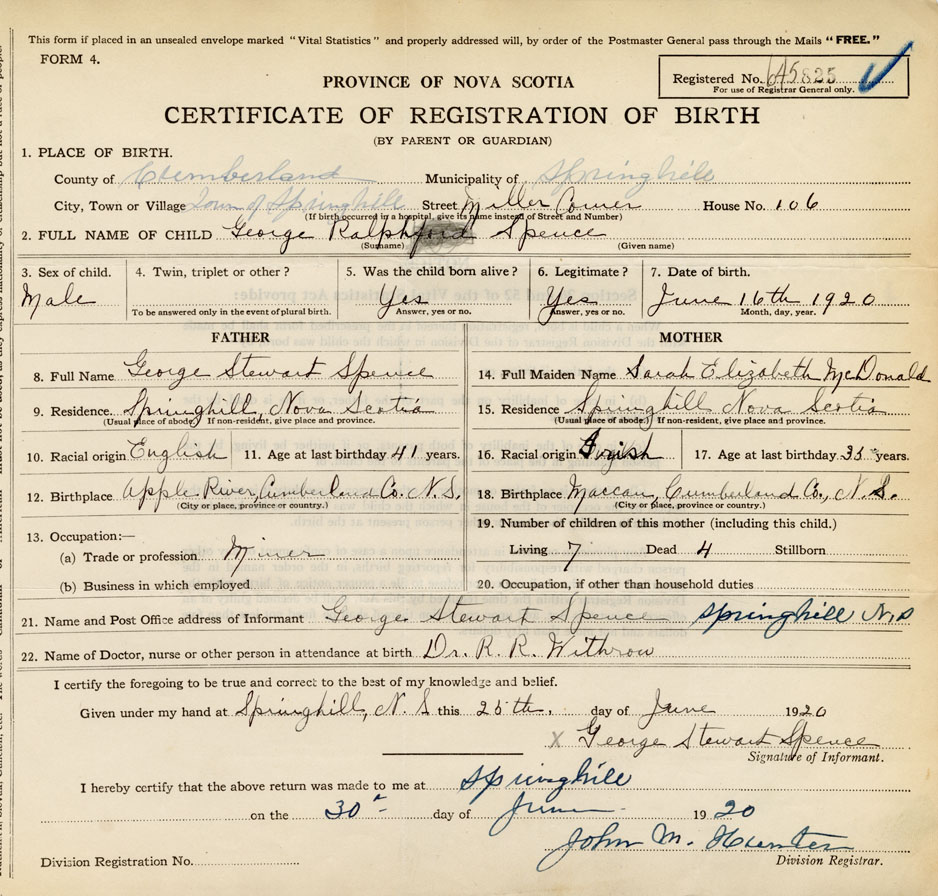 This form if placed in an unsealed envelope marked "Vital Statistics" and properly addressed will, by order of the Postmaster General pass through the Mails "FREE."
FORM 4.
Registered No. 645825
For use of Registrar General only.
PROVINCE OF NOVA SCOTIA
CERTIFICATE OF REGISTRATION OF BIRTH
(BY PARENT OR GUARDIAN)
1. PLACE OF BIRTH.
County of Cumberland Municipality of Springhill
City, Town or Village Town of Springhill Street Miller Corner House No. 106
(If birth occurred in a hospital, give its name instead of Street and Number)
2. FULL NAME OF CHILD George Ralphford Spence
(Surname) (Given name)
3. Sex of child. 4. Twin, triplet or other? 5. Was the child born alive? 6. Legitimate? 7. Date of birth.
Male Yes Yes June 16th 1920
To be answered only in the event of plural birth. Answer, yes or no. Answer, yes or no. Month, day, year.
FATHER MOTHER
8. Full Name George Stewart Spence 14. Full Maiden Name Sarah Elizabeth McDonald
9. Residence. Springhill, Nova Scotia 15. Residence Springhill Nova Scotia
(Usual place of abode) If non-resident, give place and province. (Usual place of abode) If non-resident, give place and province.
10. Racial origin English 11. Age at last birthday 41 years. 16. Racial origin 17. Age at last birthday 33 years.
12. Birthplace Apple River, Cumberland Co. N.S. 18. Birthplace Maccan, Cumberland Co., N.S.
(City or place, province or country.) (City or place, province or country.)
19. Number of children of this mother (including this child.)
13. Occupation:—
(a) Trade or profession Miner Living 7 Dead 4 Stillborn
(b) Business in which employed 20. Occupation, if other than household duties
21. Name and Post Office address of Informant George Stewart Spence Springhill N.S
22. Name of Doctor, nurse or other person in attendance at birth Dr. R. R. Withrow
I certify the foregoing to be true and correct to the best of my knowledge and belief.
Given under my hand at Springhill, N.S this 25th. day of June 1920
X George Stewart Spence
Signature of Informant.
I hereby certify that the above return was made to me at Springhill
on the 30th day of June 1920
John M. Hunter
Division Registration No. Division Registrar.